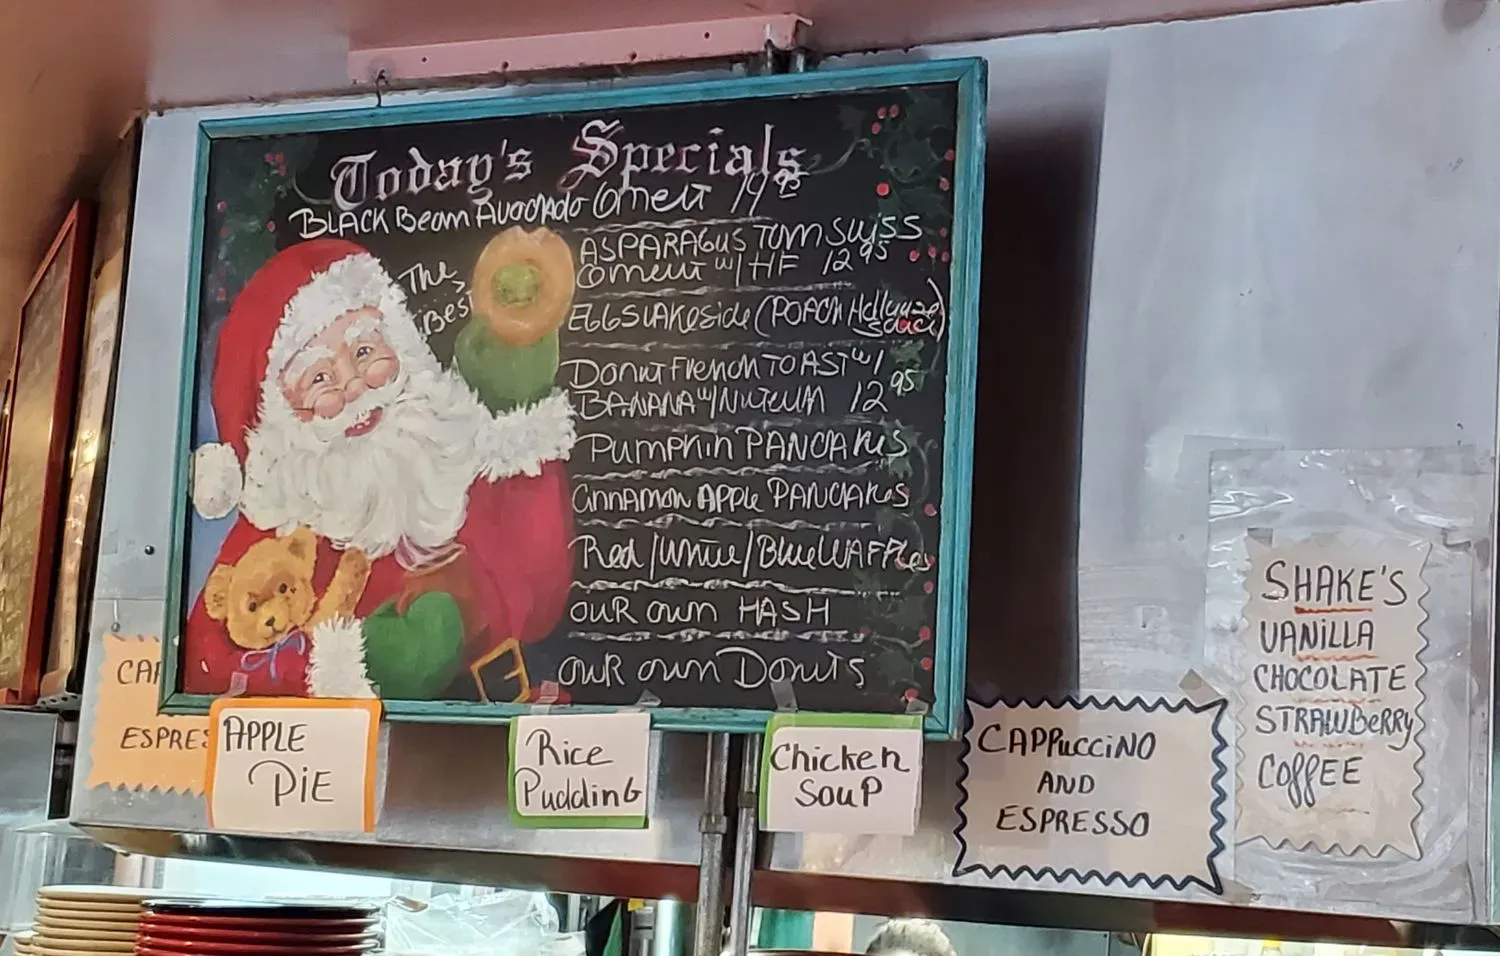 Today's Specials
BLACK Bean Avocado Omelt 14.95
The
Best
ASPARAGUS TOM SWISS
Omelt w/ HF 12 95
EGGS LAKeside (POACH Hollandaise
Sauce)
Donut French TOAST w/
BANANA w/ Nutella 12 95
Pumpkin PANCAKes
Cinnamon APPle PANCAKes
Red/White/Blue WAFFles
OUR OWN HASH
OUR OWN Donuts
CAP
ESPRES
APPLE
PiE
Rice
Pudding
Chicken
SouP
CAPPucciNO
AND
ESPRESSO
SHAKE'S
VANILLA
CHOCOLATE
STRAWBeRRy
COffEE